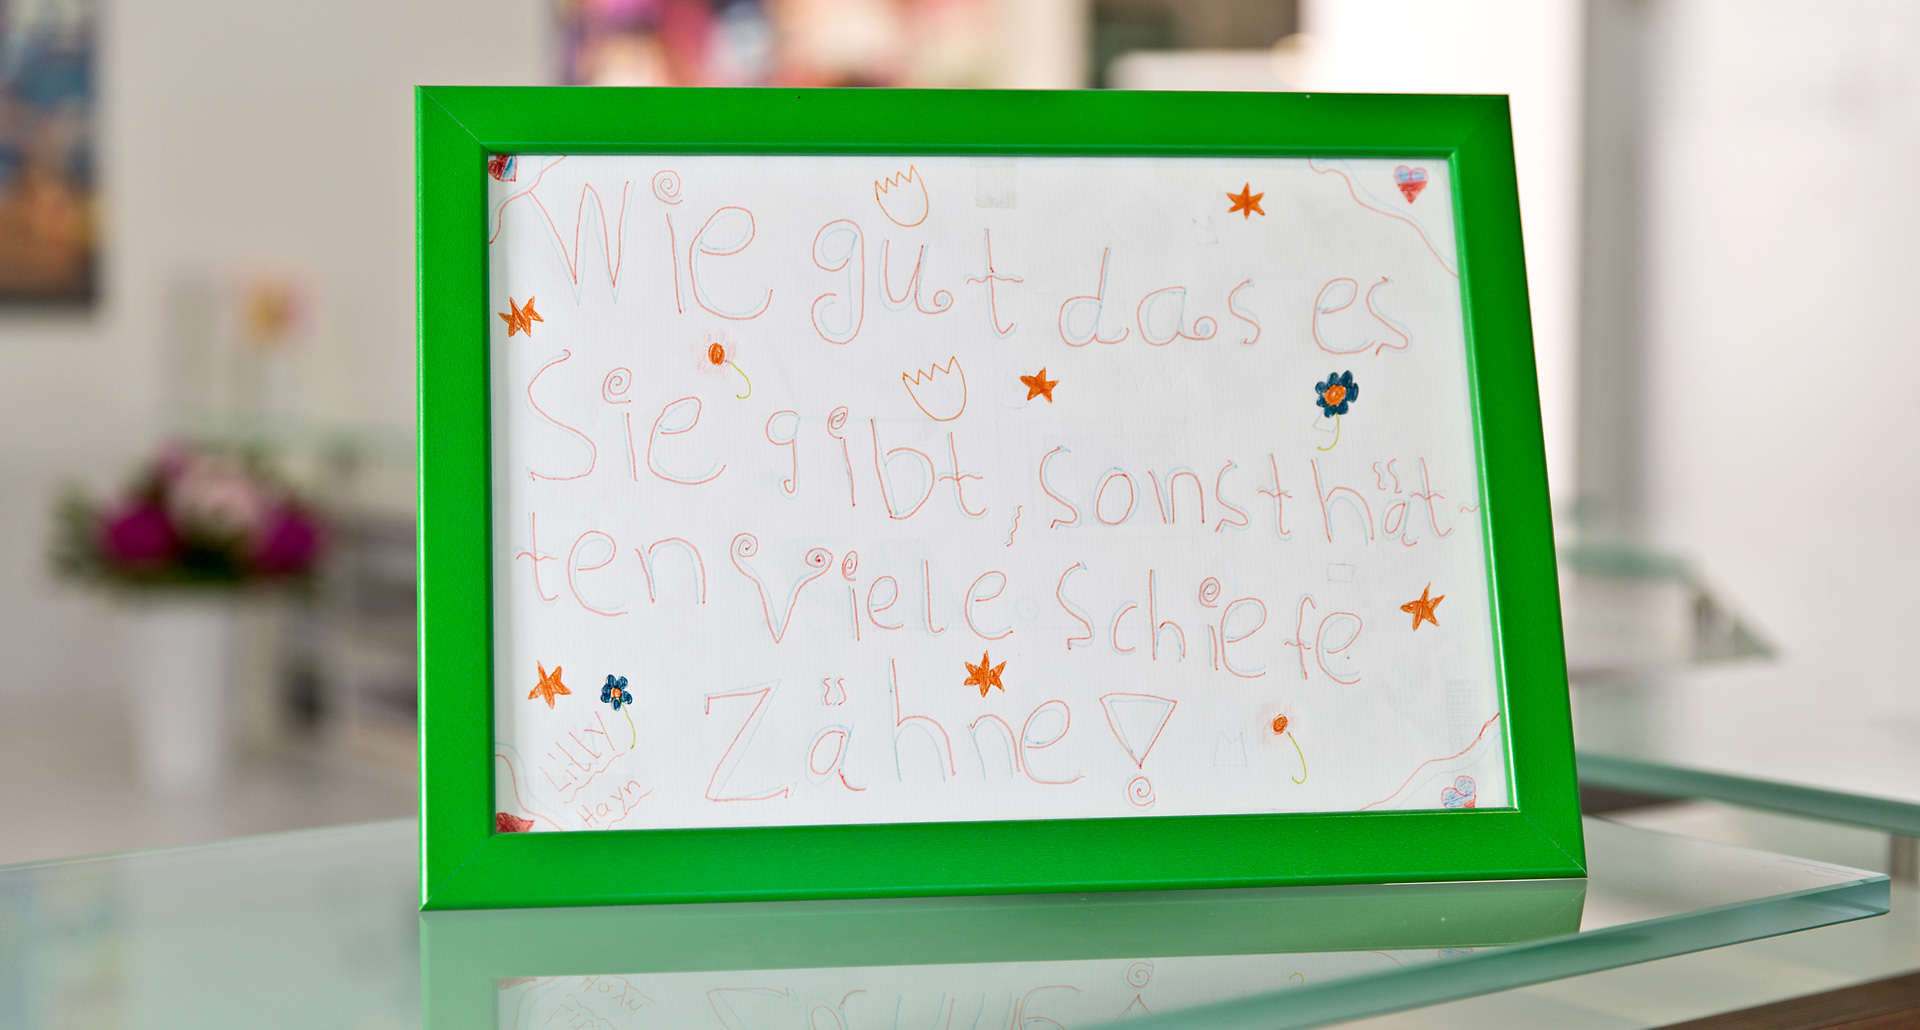 Wie gut das es
Sie gibt, sonst hät-
ten Viele Schiefe
Zähne!
Lilly
Hayn